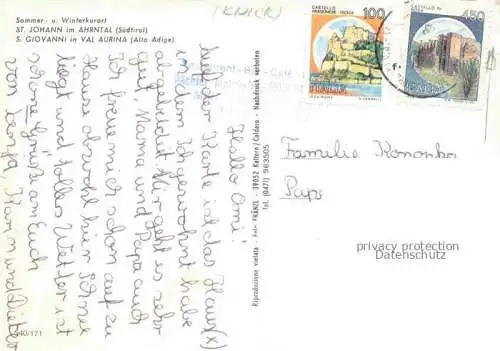 (KNICR)
Sommer- u. Winterkurort
ST. JOHANN im AHRNTAL (Südtirol)
S. GIOVANNI in VAL AURINA (Alto Adige)
CASTELLO
ARAGONESE - ISCHIA
100
ITALIA
CASTELLO DI
450
ITALIA
Hallo Omi!
Auf der Karte ist das Haus (x)
in dem ich gewohnt habe
abgebildet. Mir geht es sehr
gut, Mama und Papa auch
Ich freue mich schon auf zu
Hause obwohl hier Schnee
liegt und tolles Wetter ist
schöne Grüße an Euch
von Tanja, Karin und Dieter
Familie
Paps
privacy protection
Datenschutz
Riproduzione vietata - Fot. FRÄNZL - 39052 Kaltern/Caldaro - Nachdruck verboten
Tel. (0471) 963505
440/171